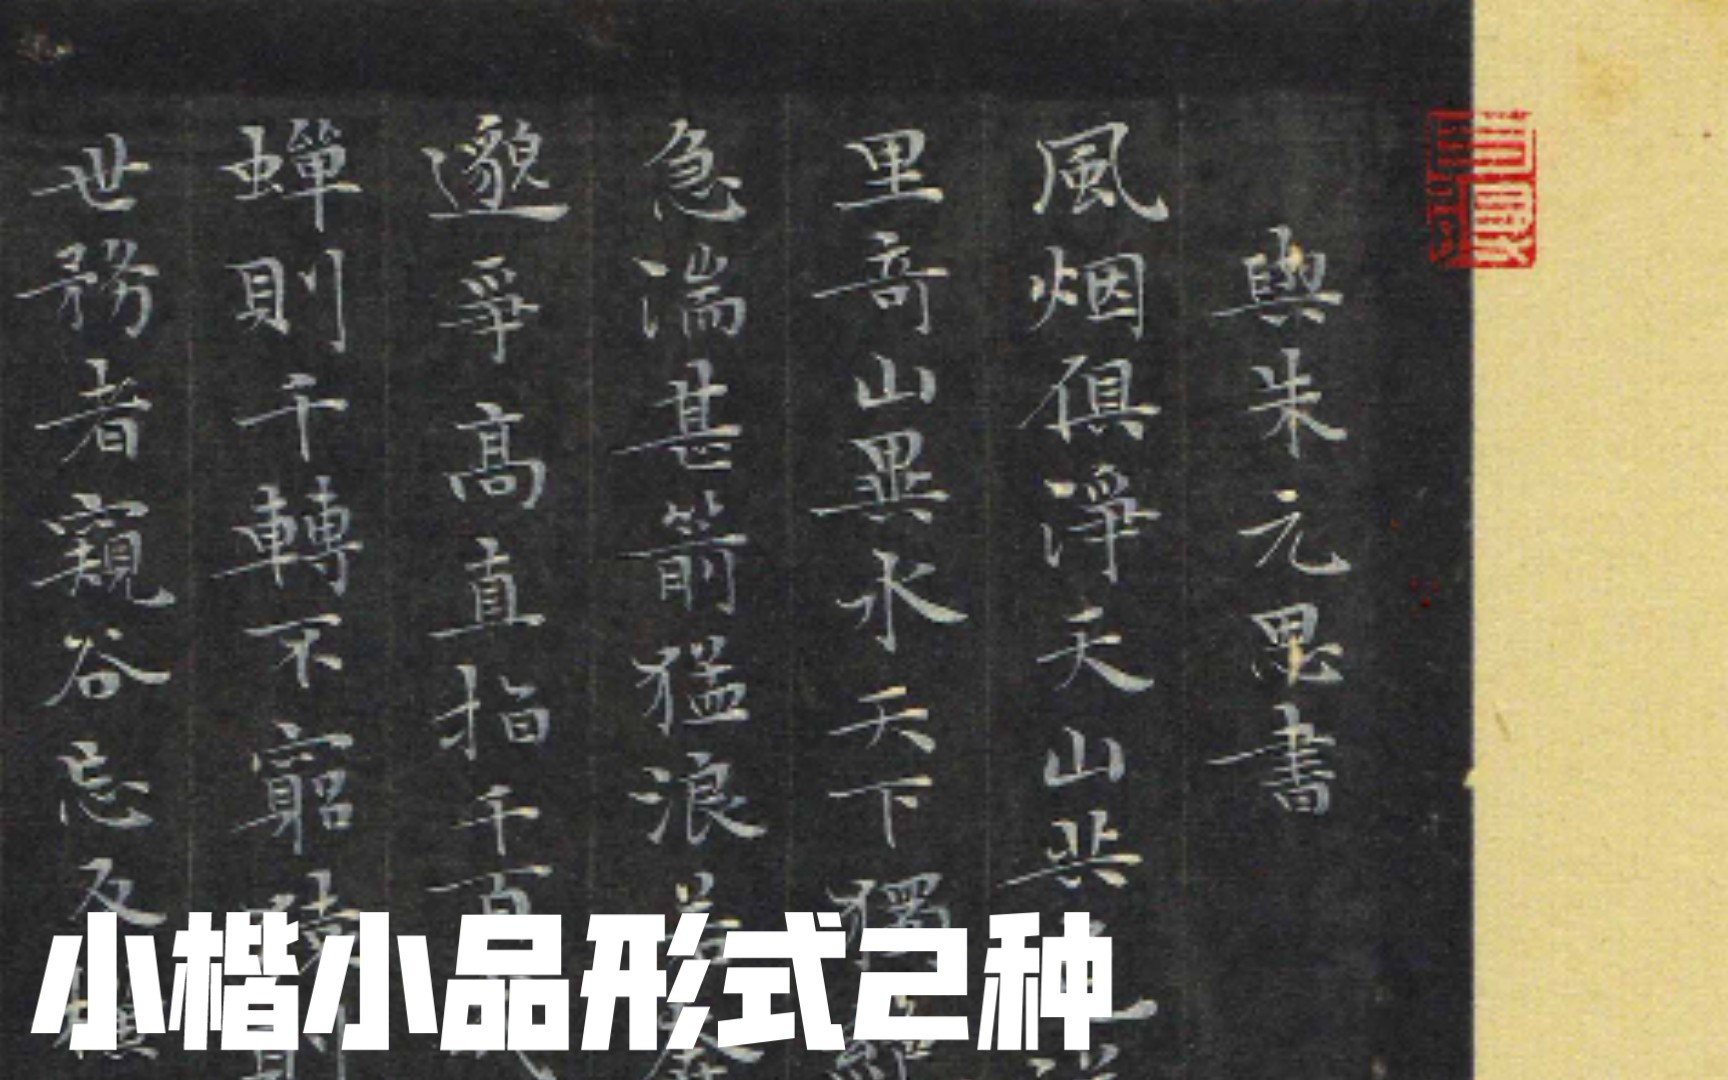 與朱元思書
風烟俱淨天山共
里奇山異水天下獨
急湍甚箭猛浪若奔
邈爭高直指千百成
蟬則千轉不窮猿則
世務者窺谷忘反
小楷小品形式2种